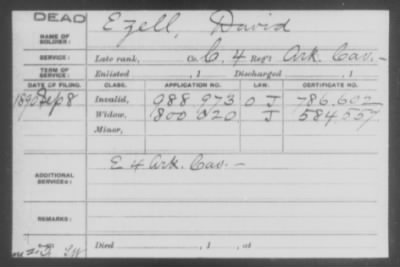 DEAD
NAME OF SOLDIER: Ezell, David
SERVICE: Late rank, Co. C, 4 Reg't Ark. Cav.-
TERM OF SERVICE: Enlisted , 1 Discharged , 1
DATE OF FILING. CLASS. APPLICATION NO. LAW. CERTIFICATE NO.
1890 Sep 8 Invalid, 988 973 O J 786.602
Widow, 800 020 J 584557
Minor,
ADDITIONAL SERVICES: E 4 Ark. Cav. -
REMARKS:
Died , 1 , at